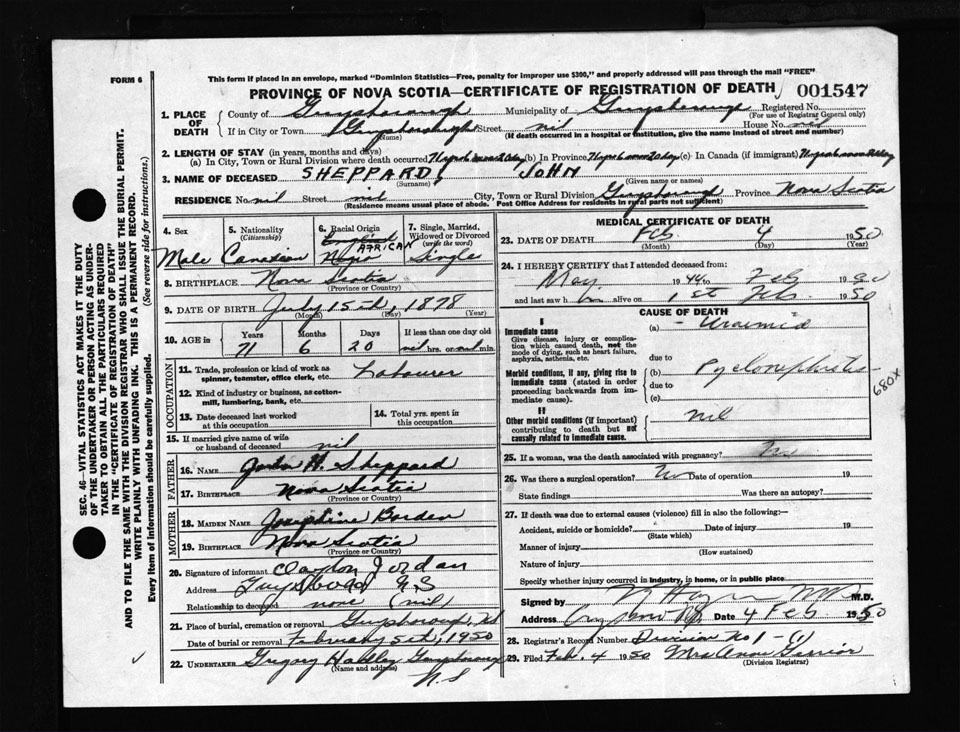 FORM 6
This form if placed in an envelope, marked "Dominion Statistics—Free, penalty for improper use $300," and properly addressed will pass through the mail "FREE"
PROVINCE OF NOVA SCOTIA—CERTIFICATE OF REGISTRATION OF DEATH 001547
1. PLACE OF DEATH County of Guysborough Municipality of Guysborough Registered No. (For use of Registrar General only)
If in City or Town Guysborough (Name) Street nil House No. nil
(If death occurred in a hospital or institution, give the name instead of street and number)
2. LENGTH OF STAY (in years, months and days)
(a) In City, Town or Rural Division where death occurred 71 yrs 6 mos 20 day (b) In Province 71 yrs 6 mos 20 day (c) In Canada (if immigrant) 71 yrs 6 mos 20 day
3. NAME OF DECEASED SHEPPARD JOHN
(Surname) (Given name or names)
RESIDENCE No. nil Street nil City, Town or Rural Division Guysborough Province Nova Scotia
(Residence means usual place of abode. Post Office Address for residents in rural parts not sufficient)
4. Sex Male
5. Nationality (Citizenship) Canadian
6. Racial Origin England AFRICAN Negro
7. Single, Married, Widowed or Divorced (write the word) Single
8. BIRTHPLACE Nova Scotia
(Province or Country)
9. DATE OF BIRTH July 15th, 1878
(Month) (Day) (Year)
10. AGE in Years 71 Months 6 Days 20 If less than one day old nil hrs. or nil min.
OCCUPATION
11. Trade, profession or kind of work as spinner, teamster, office clerk, etc. Labourer
12. Kind of industry or business, as cotton-mill, lumbering, bank, etc.
13. Date deceased last worked at this occupation
14. Total yrs. spent in this occupation
15. If married give name of wife or husband of deceased nil
FATHER
16. NAME John H. Sheppard
17. BIRTHPLACE Nova Scotia
(Province or Country)
MOTHER
18. MAIDEN NAME Josephine Borden
19. BIRTHPLACE Nova Scotia
(Province or Country)
20. Signature of informant Clayton Jordan
Address Guysboro N S
Relationship to deceased none (nil)
21. Place of burial, cremation or removal Guysborough, NS
Date of burial or removal February 5th, 1950
22. UNDERTAKER Guysborough
(Name and address)
N.S
MEDICAL CERTIFICATE OF DEATH
23. DATE OF DEATH Feb 4 1950
(Month) (Day) (Year)
24. I HEREBY CERTIFY that I attended deceased from:
May 1944 to Feb 1950
and last saw him alive on 1st Feb. 1950
CAUSE OF DEATH
I
Immediate cause
Give disease, injury or complication which caused death, not the mode of dying, such as heart failure, asphyxia, asthenia, etc.
(a) Uraemia
due to
Morbid conditions, if any, giving rise to immediate cause (stated in order proceeding backwards from immediate cause).
(b) Pyelonephritis
due to
(c)
680X
II
Other morbid conditions (if important) contributing to death but not causally related to immediate cause.
nil
25. If a woman, was the death associated with pregnancy? No
26. Was there a surgical operation? No Date of operation 19
State findings Was there an autopsy?
27. If death was due to external causes (violence) fill in also the following:—
Accident, suicide or homicide? Date of injury 19
(State which)
Manner of injury
(How sustained)
Nature of injury
Specify whether injury occurred in industry, in home, or in public place
Signed by M.D.
Address Date 4 Feb 1950
28. Registrar's Record Number Division No 1 - (1)
29. Filed Feb. 4 1950 Mrs
(Division Registrar)
SEC. 46—VITAL STATISTICS ACT MAKES IT THE DUTY
OF THE UNDERTAKER OR PERSON ACTING AS UNDER-
TAKER TO OBTAIN ALL THE PARTICULARS REQUIRED
IN THE "CERTIFICATE OF REGISTRATION OF DEATH"
AND TO FILE THE SAME WITH THE DIVISION REGISTRAR WHO SHALL ISSUE THE BURIAL PERMIT.
WRITE PLAINLY WITH UNFADING INK. THIS IS A PERMANENT RECORD.
Every item of information should be carefully supplied. (See reverse side for instructions.)